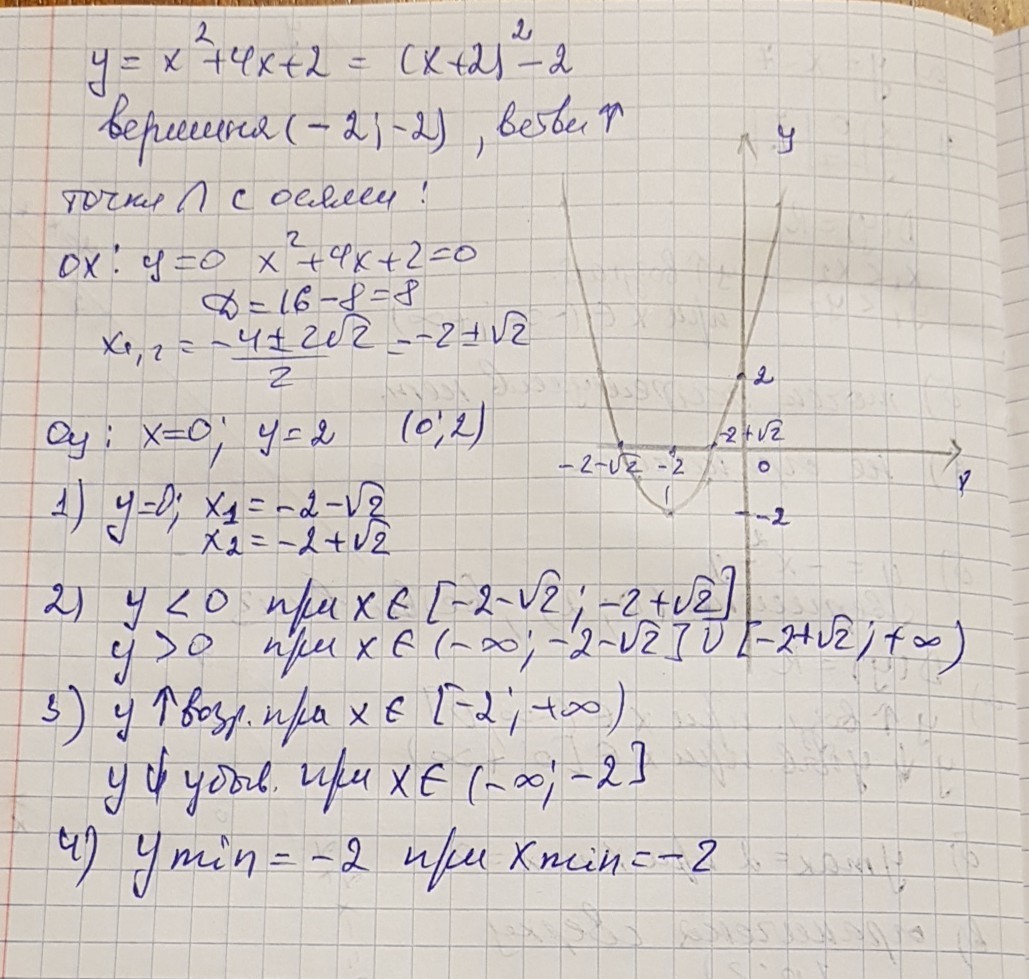 y = x²+4x+2 = (x+2)²-2
вершина (-2; -2), ветви ↑
точки ∩ с осями:
ox: y=0 x²+4x+2=0
D=16-8=8
x₁,₂ = (-4±2√2)/2 = -2±√2
Oy: x=0; y=2 (0; 2)
1) y=0; x₁ = -2-√2
x₂ = -2+√2
2) y < 0 при x ∈ [-2-√2; -2+√2]
y > 0 при x ∈ (-∞; -2-√2] ∪ [-2+√2; +∞)
3) y ↑ возр. при x ∈ [-2; +∞)
y ↓ убыв. при x ∈ (-∞; -2]
4) y min = -2 при x min = -2
y
2
-2-√2 -2 -2+√2 0
-2